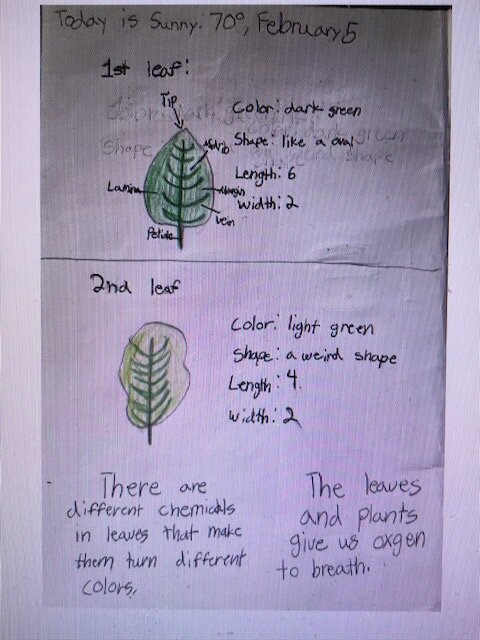 Today is Sunny: 70°, February 5
1st leaf:
Tip
Color: dark green
Shape: like a oval
Midrib
Length: 6
Lamina
Margin
Width: 2
Vein
Petiole
2nd leaf
Color: light green
Shape: a weird shape
Length: 4
Width: 2
There are
different chemicals
in leaves that make
them turn different
colors.
The leaves
and plants
give us oxgen
to breath.